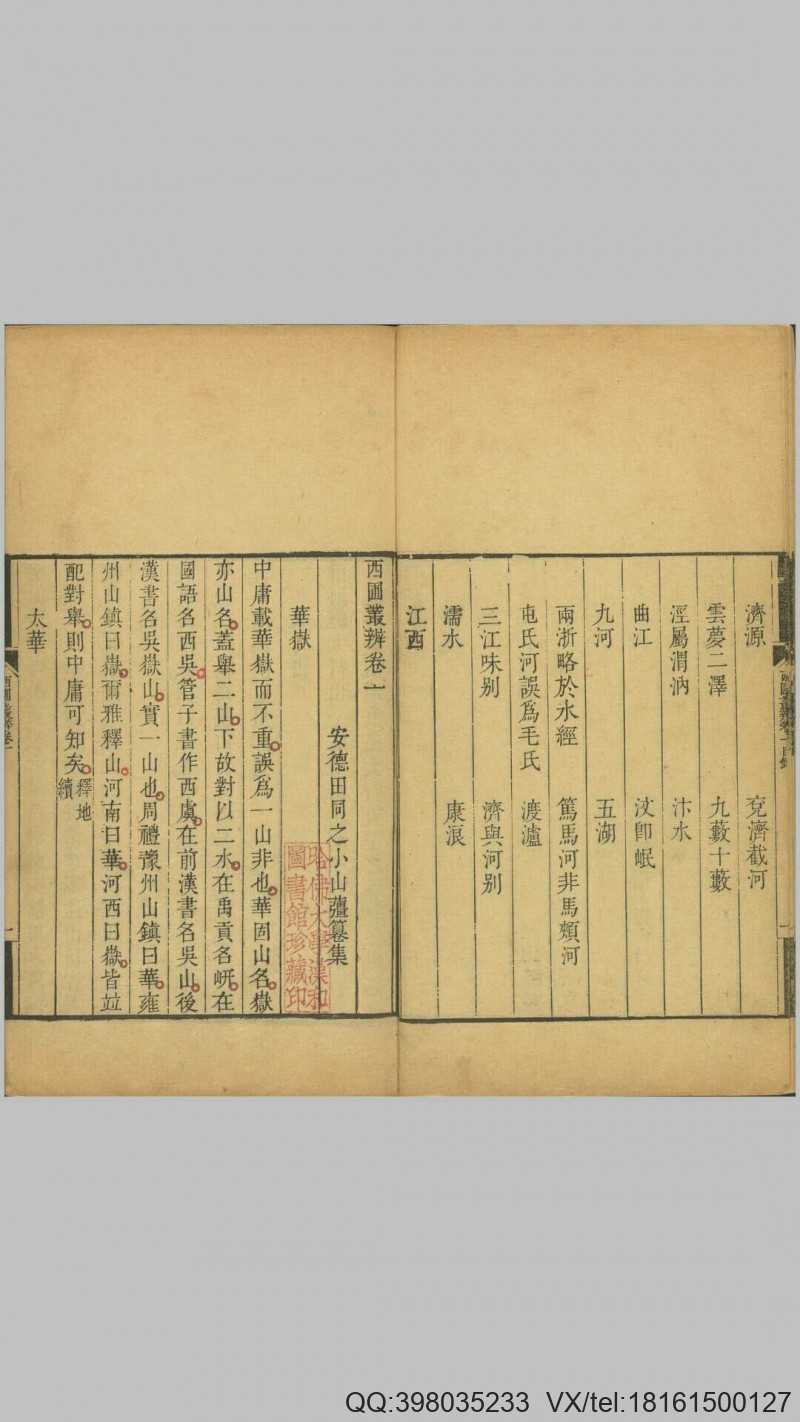 濟源　兗濟截河
雲夢二澤　九藪十藪
涇屬渭汭　汴水
曲江　汶卽岷
九河　五湖
兩浙略於水經　篤馬河非馬頰河
屯氏河誤爲毛氏　渡瀘
三江味别　濟與河别
濡水　康浪
江西
西圃叢辨卷一
安德田同之小山薑纂集
華嶽
中庸載華嶽而不重誤爲一山非也華固山名嶽
亦山名蓋舉二山下故對以二水在禹貢名岍在
國語名西吳管子書作西虞在前漢書名吳山後
漢書名吳嶽山實一山也周禮豫州山鎮曰華雍
州山鎮曰嶽爾雅釋山河南曰華河西曰嶽皆竝
配對舉則中庸可知矣釋地
續
太華
哈佛大學漢和
圖書館珍藏印
QQ:398035233 VX/tel:18161500127